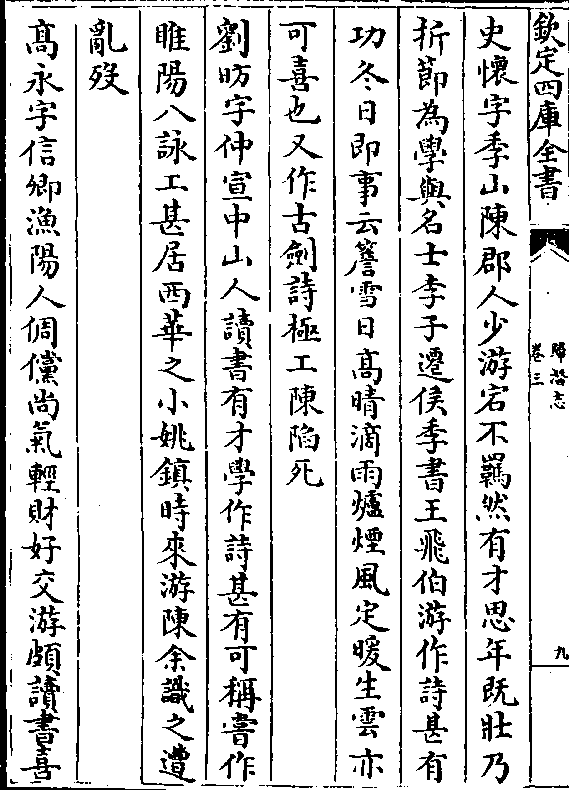 欽定四庫全書
歸潛志
卷三
九
史懷字季山陳郡人少游宕不羈然有才思年既壯乃
折節為學與名士李子遷侯季書王飛伯游作詩甚有
功冬日即事云簷雪日高晴滴雨爐煙風定暖生雲亦
可喜也又作古劍詩極工陳陷死
劉昉字仲宣中山人讀書有才學作詩甚有可稱嘗作
睢陽八詠工甚居西華之小姚鎮時來游陳余識之遭
亂歿
髙永字信卿漁陽人倜儻尚氣輕財好交游頗讀書喜